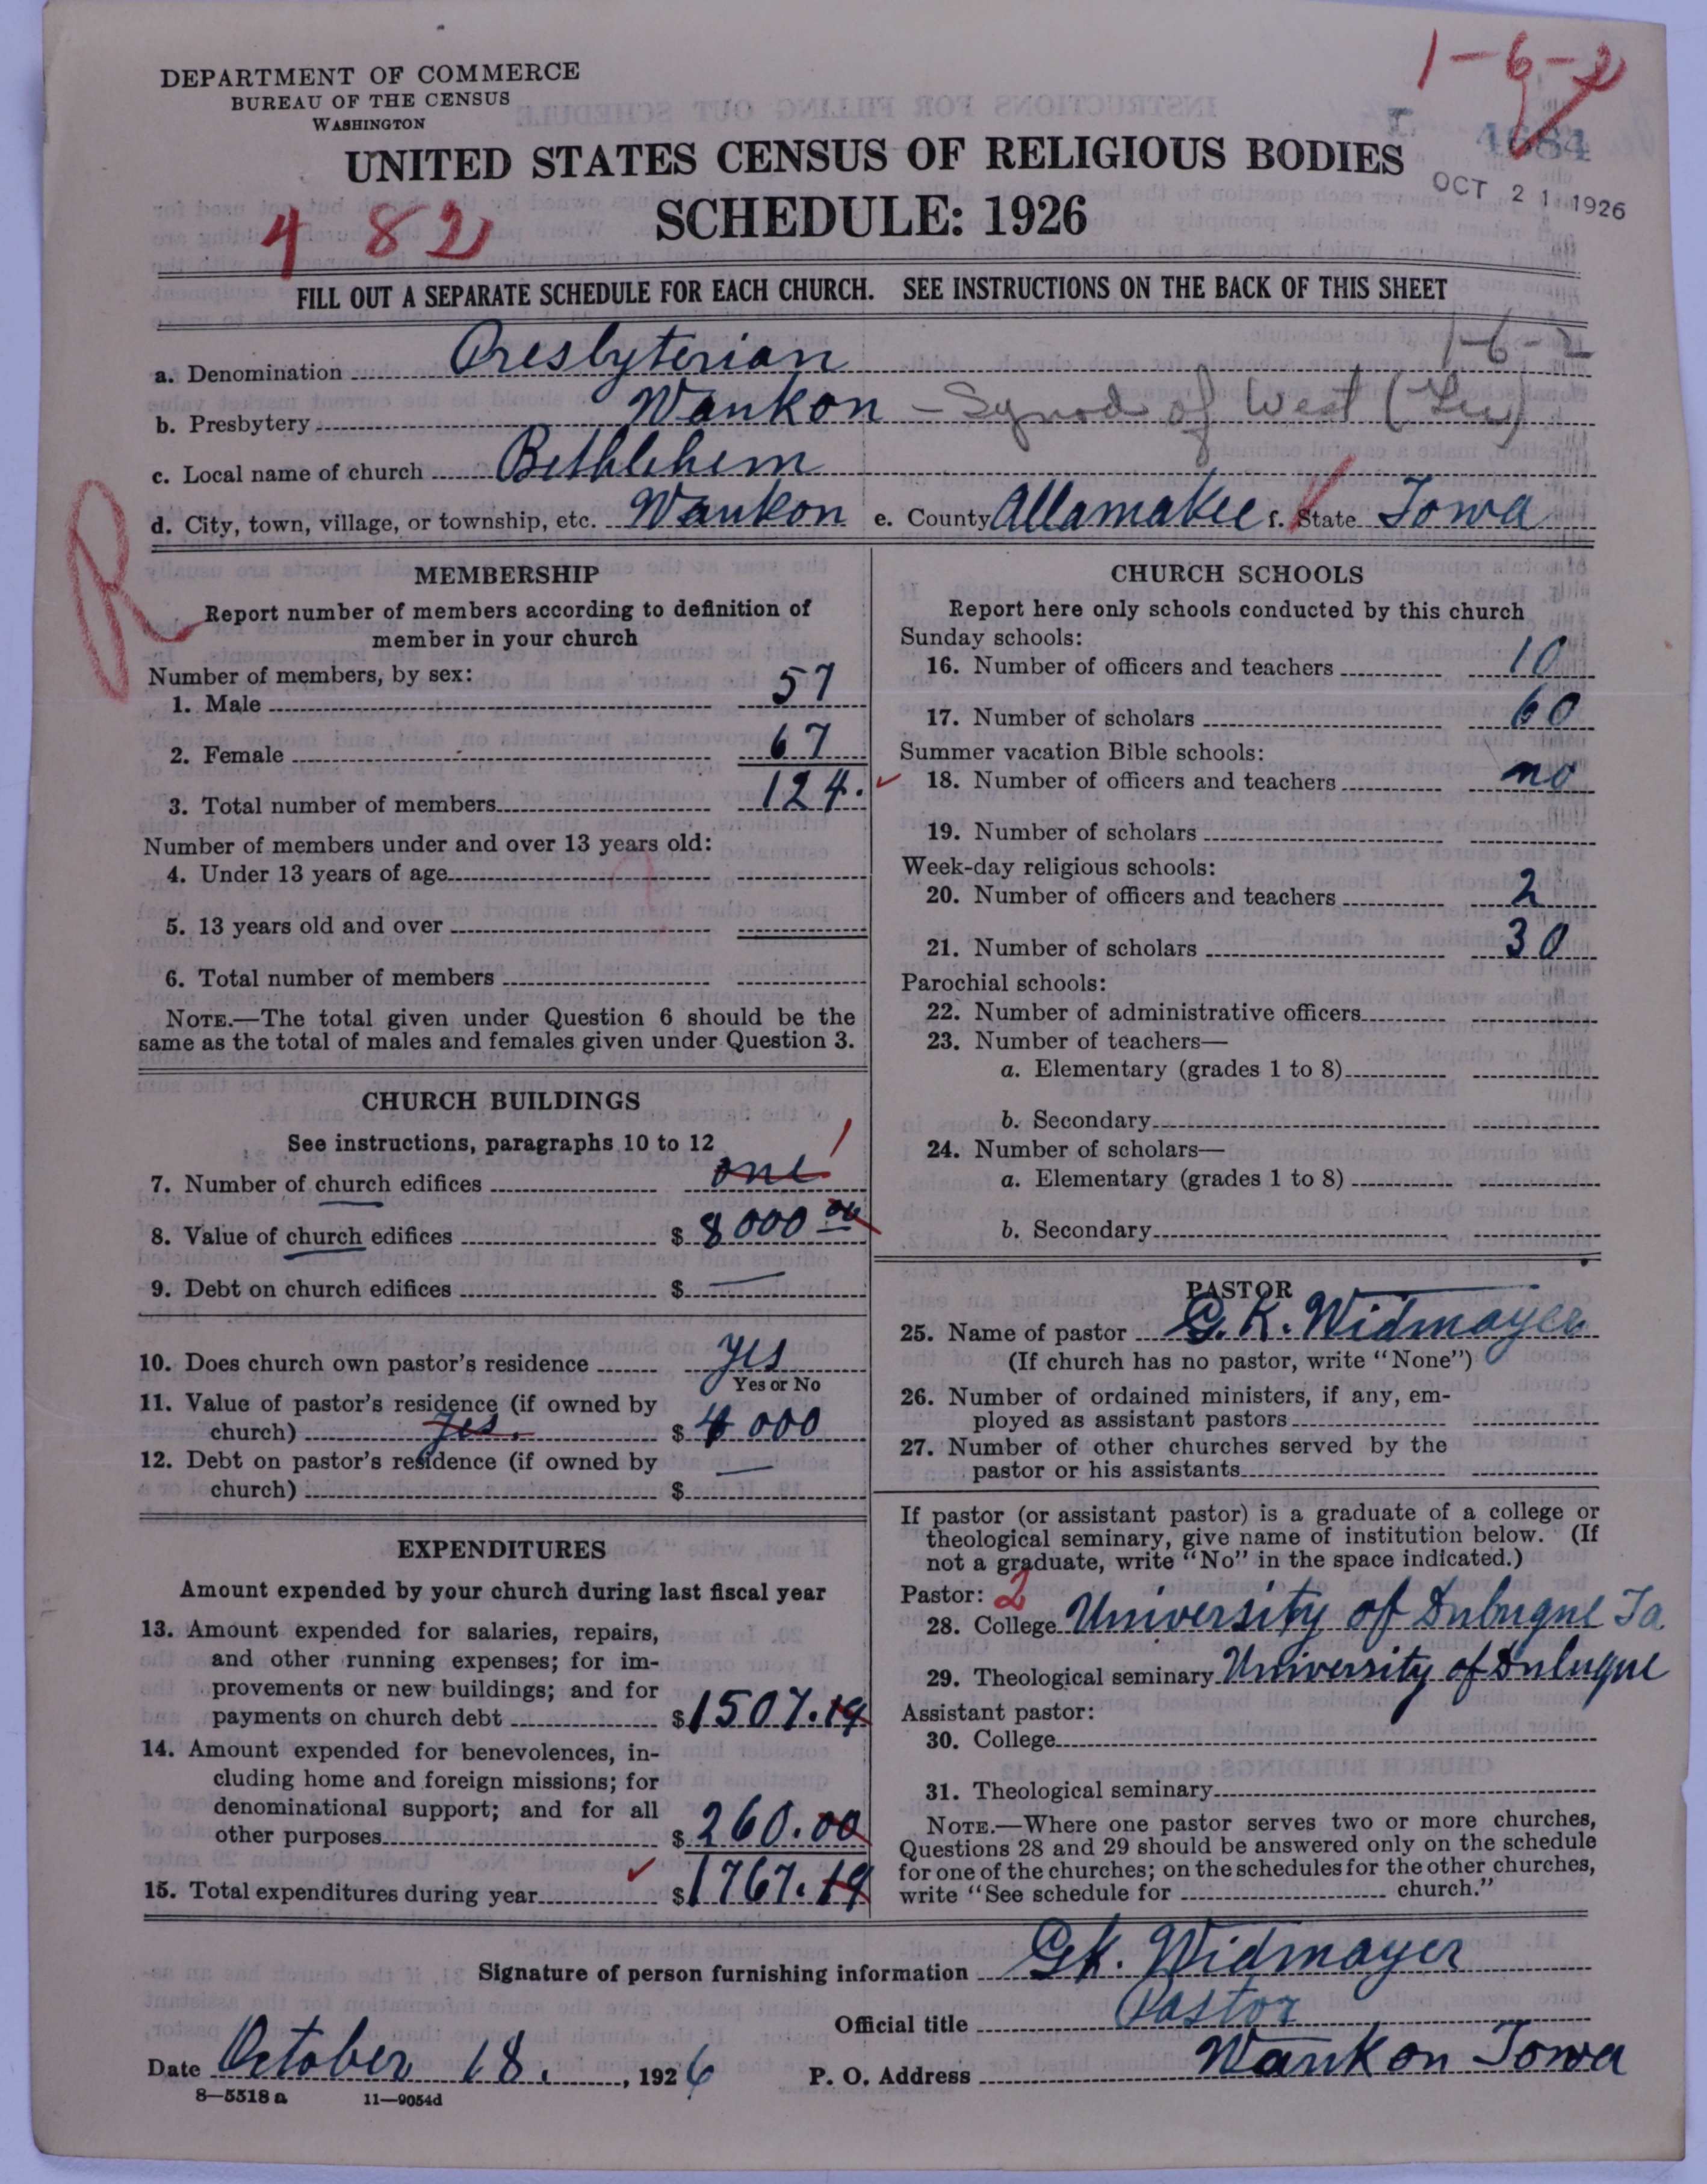 1-6-2
DEPARTMENT OF COMMERCE
BUREAU OF THE CENSUS
WASHINGTON
4684
OCT 21 1926
UNITED STATES CENSUS OF RELIGIOUS BODIES
SCHEDULE: 1926
482
FILL OUT A SEPARATE SCHEDULE FOR EACH CHURCH. SEE INSTRUCTIONS ON THE BACK OF THIS SHEET
1-6-2
a. Denomination Presbyterian
b. Presbytery Waukon - Synod of West
c. Local name of church Bethlehem
d. City, town, village, or township, etc. Waukon e. County Allamakee f. State Iowa
R
MEMBERSHIP
Report number of members according to definition of
member in your church
Number of members, by sex:
1. Male 57
2. Female 67
3. Total number of members 124.
Number of members under and over 13 years old:
4. Under 13 years of age
5. 13 years old and over
6. Total number of members
NOTE.—The total given under Question 6 should be the
same as the total of males and females given under Question 3.
CHURCH BUILDINGS
See instructions, paragraphs 10 to 12
7. Number of church edifices one 1
8. Value of church edifices $ 8000 00
9. Debt on church edifices $ —
10. Does church own pastor's residence yes
Yes or No
11. Value of pastor's residence (if owned by
church) yes. $ 4000
12. Debt on pastor's residence (if owned by
church) $ —
EXPENDITURES
Amount expended by your church during last fiscal year
13. Amount expended for salaries, repairs,
and other running expenses; for im-
provements or new buildings; and for
payments on church debt $ 1507.19
14. Amount expended for benevolences, in-
cluding home and foreign missions; for
denominational support; and for all
other purposes $ 260.00
15. Total expenditures during year ✓ $ 1767.19
CHURCH SCHOOLS
Report here only schools conducted by this church
Sunday schools:
16. Number of officers and teachers 10
17. Number of scholars 60
Summer vacation Bible schools:
✓ 18. Number of officers and teachers no
19. Number of scholars
Week-day religious schools:
20. Number of officers and teachers 2
21. Number of scholars 30
Parochial schools:
22. Number of administrative officers
23. Number of teachers—
a. Elementary (grades 1 to 8)
b. Secondary
24. Number of scholars—
a. Elementary (grades 1 to 8)
b. Secondary
PASTOR
25. Name of pastor G. K. Widmayer
(If church has no pastor, write "None")
26. Number of ordained ministers, if any, em-
ployed as assistant pastors
27. Number of other churches served by the
pastor or his assistants
If pastor (or assistant pastor) is a graduate of a college or
theological seminary, give name of institution below. (If
not a graduate, write "No" in the space indicated.)
Pastor: 2
28. College University of Dubuque Ia.
29. Theological seminary University of Dubuque
Assistant pastor:
30. College
31. Theological seminary
NOTE.—Where one pastor serves two or more churches,
Questions 28 and 29 should be answered only on the schedule
for one of the churches; on the schedules for the other churches,
write "See schedule for church."
Signature of person furnishing information G.K. Widmayer
Official title Pastor
Date October 18., 1926 P. O. Address Waukon Iowa
8—5518 a 11—9054d